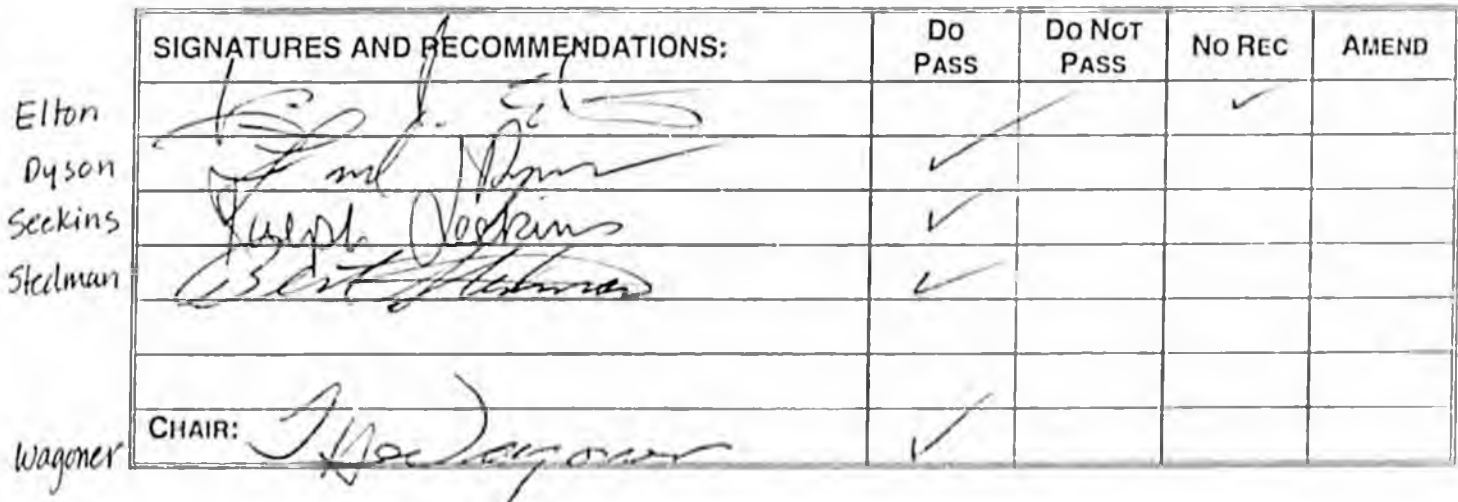 SIGNATURES AND RECOMMENDATIONS: DO PASS DO NOT PASS NO REC AMEND
Elton ✓
Dyson ✓
Seekins Joseph Seekins ✓
Stedman Bert Stedman ✓
Wagoner CHAIR: Wagoner ✓